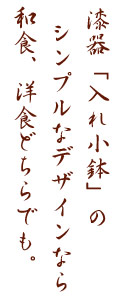 漆器「入れ小鉢」の
シンプルなデザインなら
和食、洋食どちらでも。